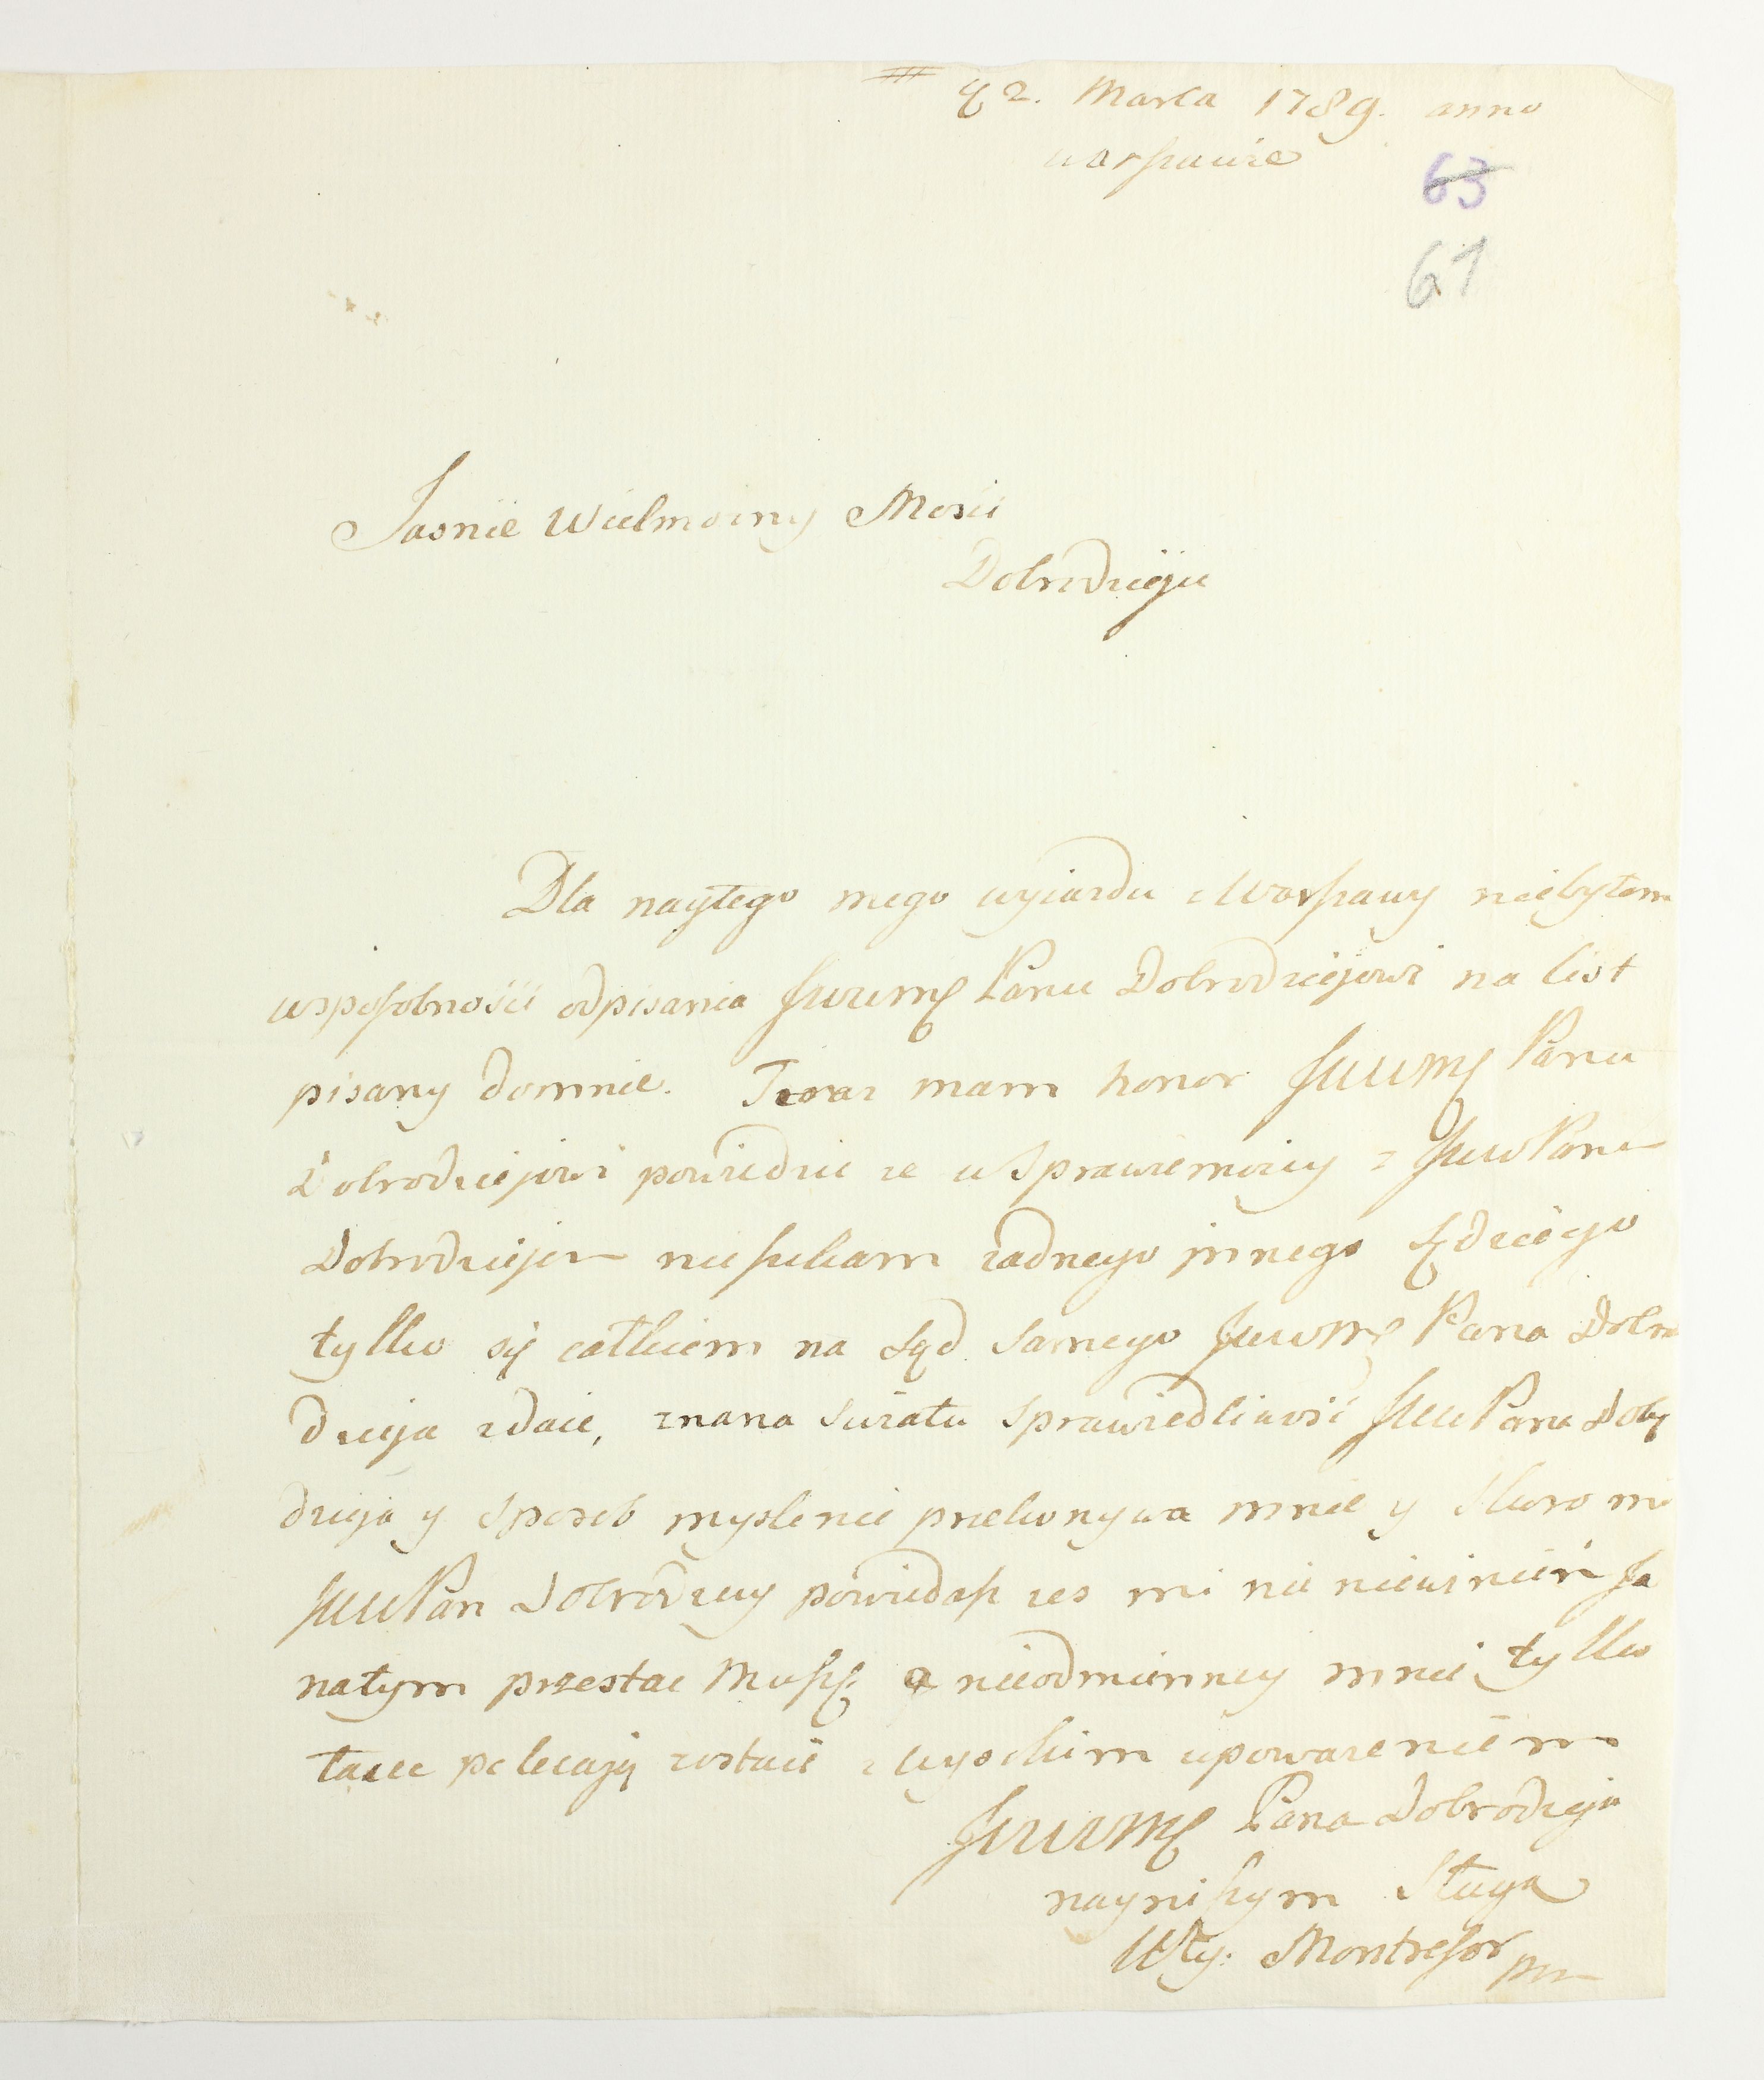 d 2. Marca 1789. anno
warszawie
63
61
Jasnie Wielmozny Mosci
Dobrodzieju
Dla nagłego mego wyiazdu z Warszawy niebyłem
wsposobnosci odpisania JWWMę Panu Dobrodziejowi na list
pisany domnie. Teraz mam honor JWWMę Panu
Dobrodziejowi powiedziec ze w Sprawiemoiey z JWWPanem
Dobrodziejem nieszukam zadnego jnnego Sędziego
tylko się całkiem na Sąd Samego JWWMę Pana Dobro
dzieja zdaie, znana Swiatu Sprawiedliwosc JWWPana Dobr
dzieja y Sposob myslenie przekonywa mnie y Skoro mi
JWWPan Dobrodziey powiedasz zes mi nic niewinien Ja
natym przestac Muszę. a nieodmienney mnie tylko
łasce polecając zostaie z wysokim upowazeniem
JWWMę Pana Dobrodzieja
nayniszym Sługa
Montresor mp